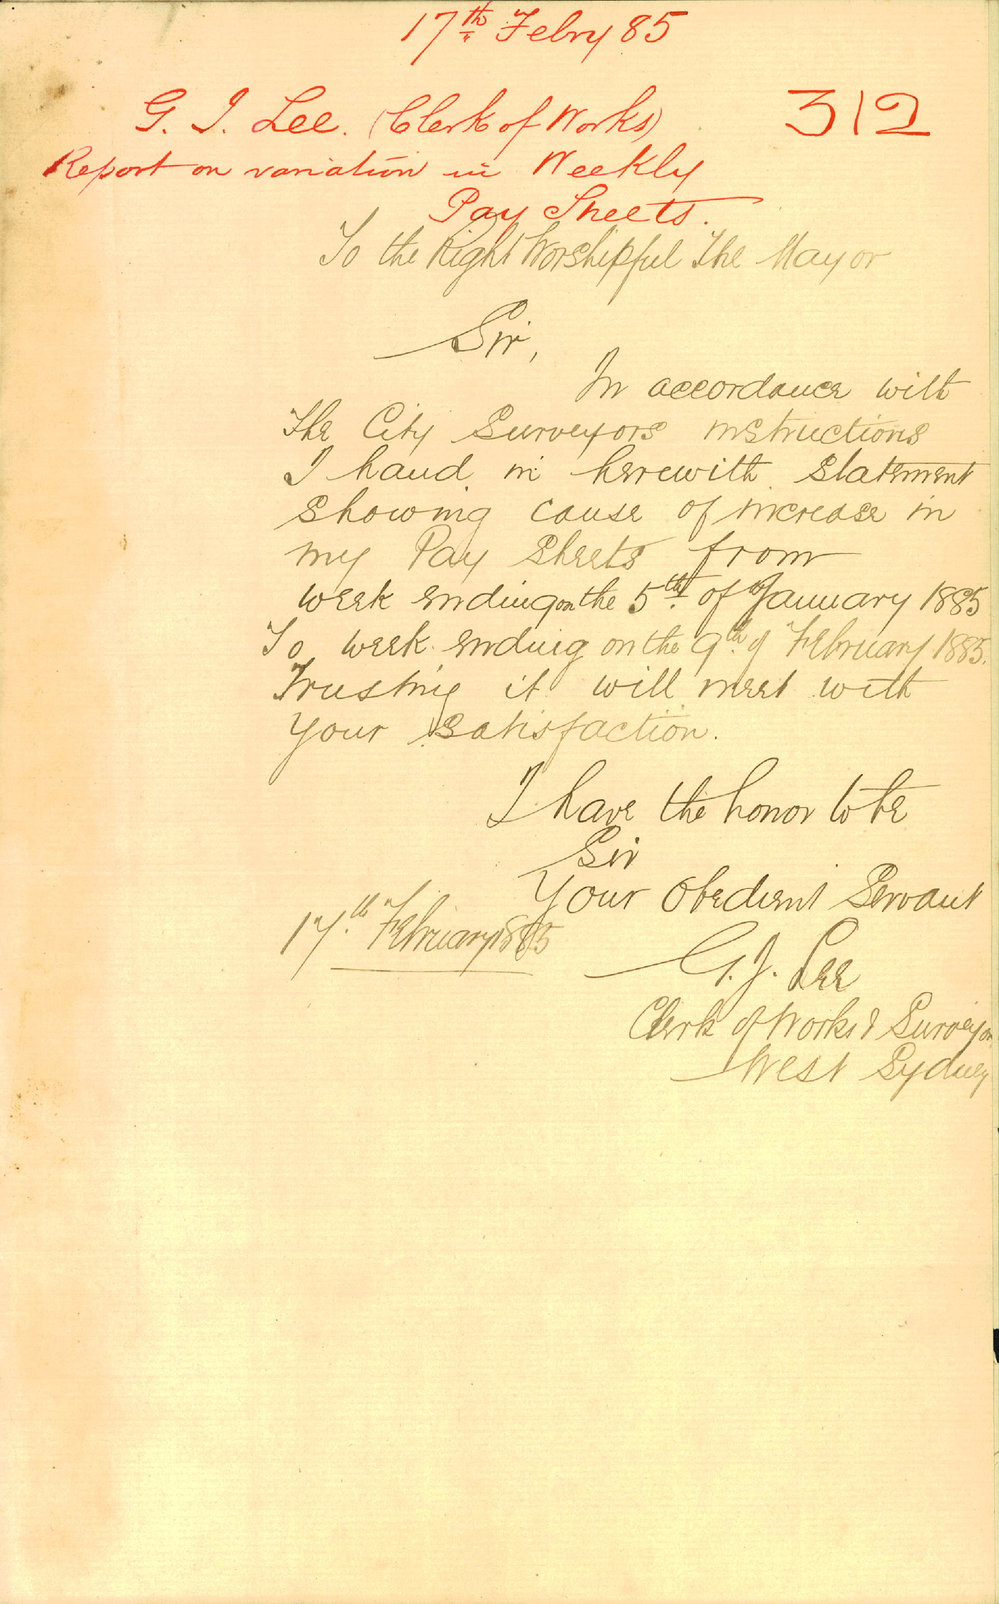 17th Febry 85
G. J. Lee. (Clerk of Works)
312
Report on variation in Weekly
Pay Sheets.
To the Right Worshipful The Mayor
Sir,
In accordance with
The City Surveyors instructions
I hand in herewith statement
showing cause of increase in
my Pay Sheets from
week ending on the 5th of January 1885
To week ending on the 9th of February 1885.
Trusting it will meet with
your satisfaction.
I have the honor to be
Sir
Your Obedient Servant
17th February 1885
G. J. Lee
Clerk of Works & Surveyor
West Sydney